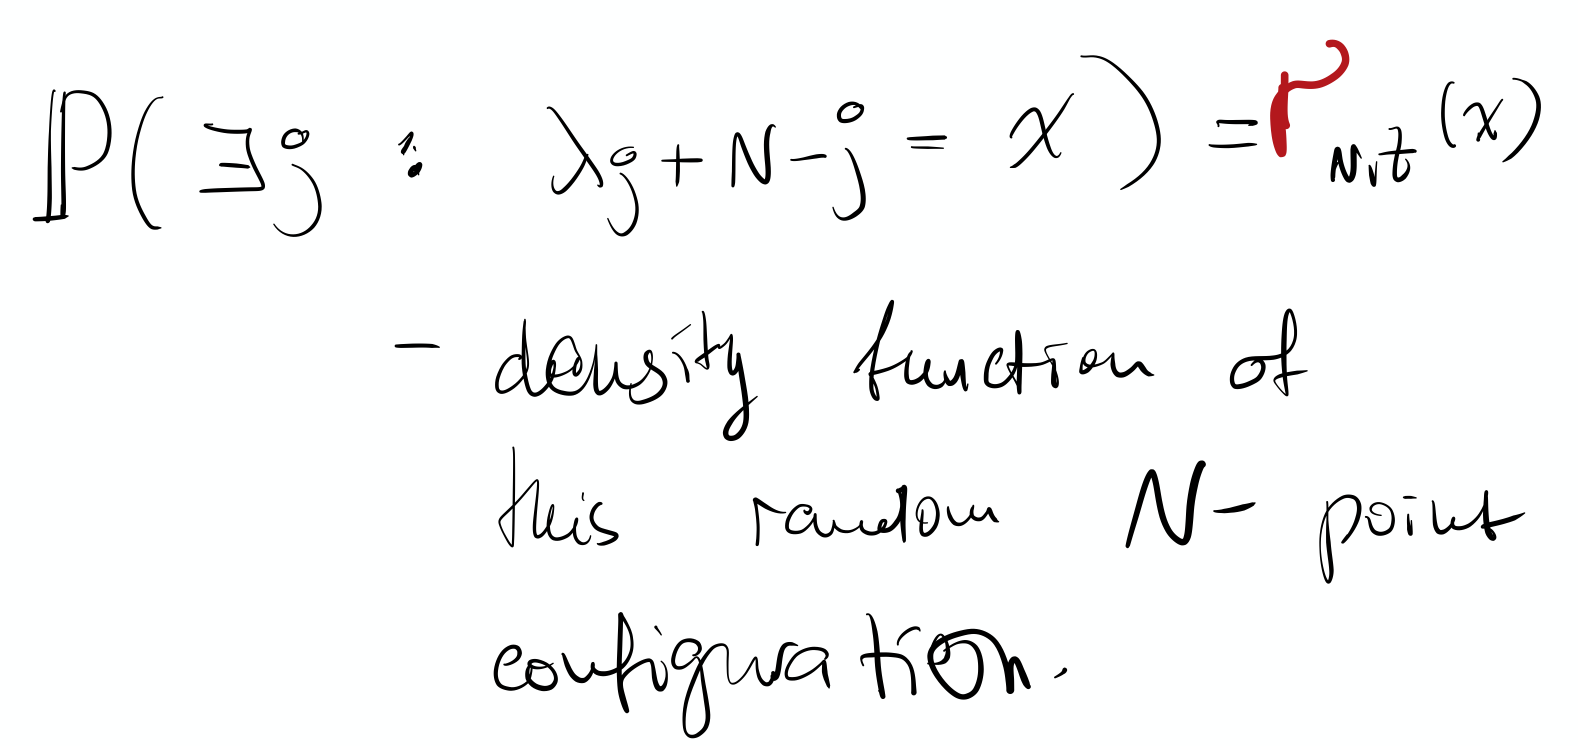 ℙ(∃j : λ_j + N − j = x) = r_{N,t}(x)
− density function of
this random N- point
configuration.